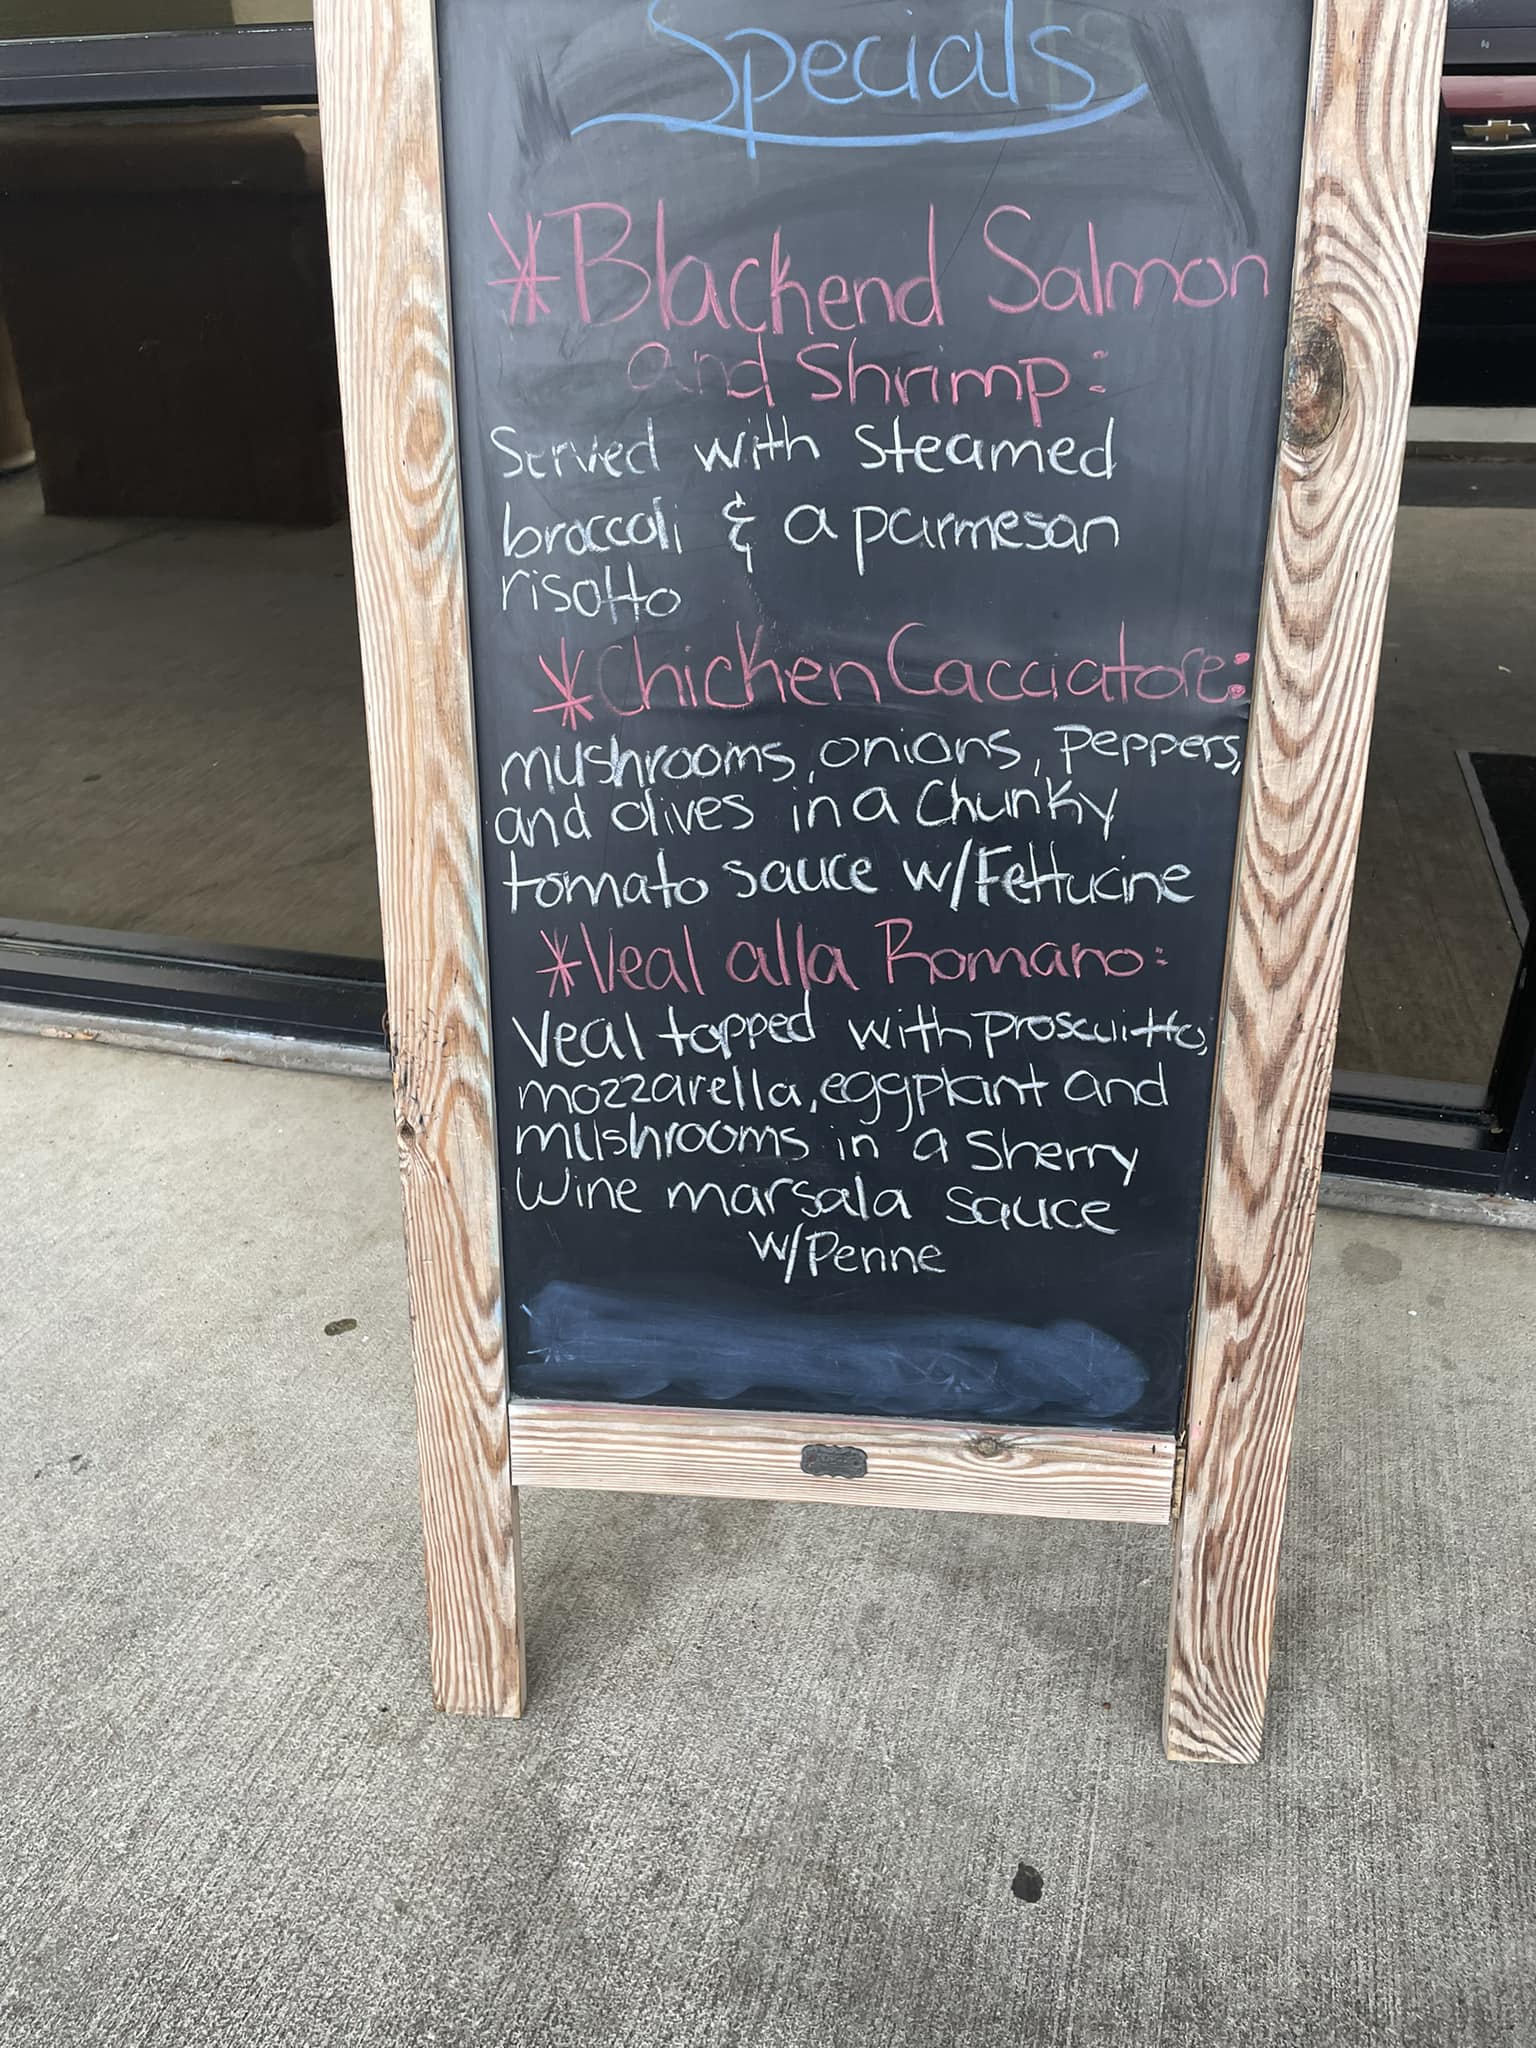 Specials
*Blackend Salmon
and Shrimp:
Served with steamed
broccoli & a parmesan
risotto
*Chicken Cacciatore:
mushrooms, onions, peppers,
and olives in a chunky
tomato sauce w/Fettucine
*Veal alla Romano:
Veal topped with proscuitto,
mozzarella, eggplant and
mushrooms in a sherry
Wine marsala sauce
w/Penne